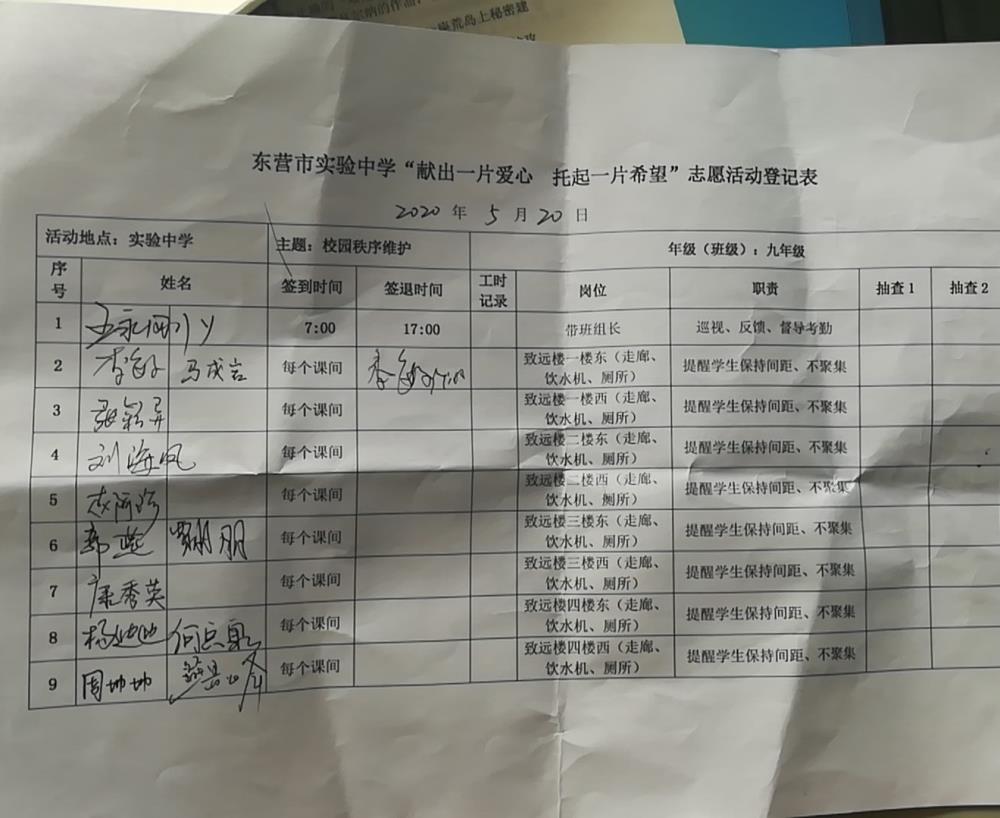 座荒岛上秘密建
东营市实验中学“献出一片爱心 托起一片希望”志愿活动登记表
2020 年 5 月 20 日
活动地点：实验中学 主题：校园秩序维护 年级（班级）：九年级
序号 姓名 签到时间 签退时间 工时记录 岗位 职责 抽查1 抽查2
1 7:00 17:00 带班组长 巡视、反馈、督导考勤
2 马成岩 每个课间 致远楼一楼东（走廊、饮水机、厕所） 提醒学生保持间距、不聚集
3 每个课间 致远楼一楼西（走廊、饮水机、厕所） 提醒学生保持间距、不聚集
4 刘海帆 每个课间 致远楼二楼东（走廊、饮水机、厕所） 提醒学生保持间距、不聚集
5 每个课间 致远楼二楼西（走廊、饮水机、厕所） 提醒学生保持间距、不聚集
6 每个课间 致远楼三楼东（走廊、饮水机、厕所） 提醒学生保持间距、不聚集
7 康秀英 每个课间 致远楼三楼西（走廊、饮水机、厕所） 提醒学生保持间距、不聚集
8 每个课间 致远楼四楼东（走廊、饮水机、厕所） 提醒学生保持间距、不聚集
9 周坤坤 每个课间 致远楼四楼西（走廊、饮水机、厕所） 提醒学生保持间距、不聚集